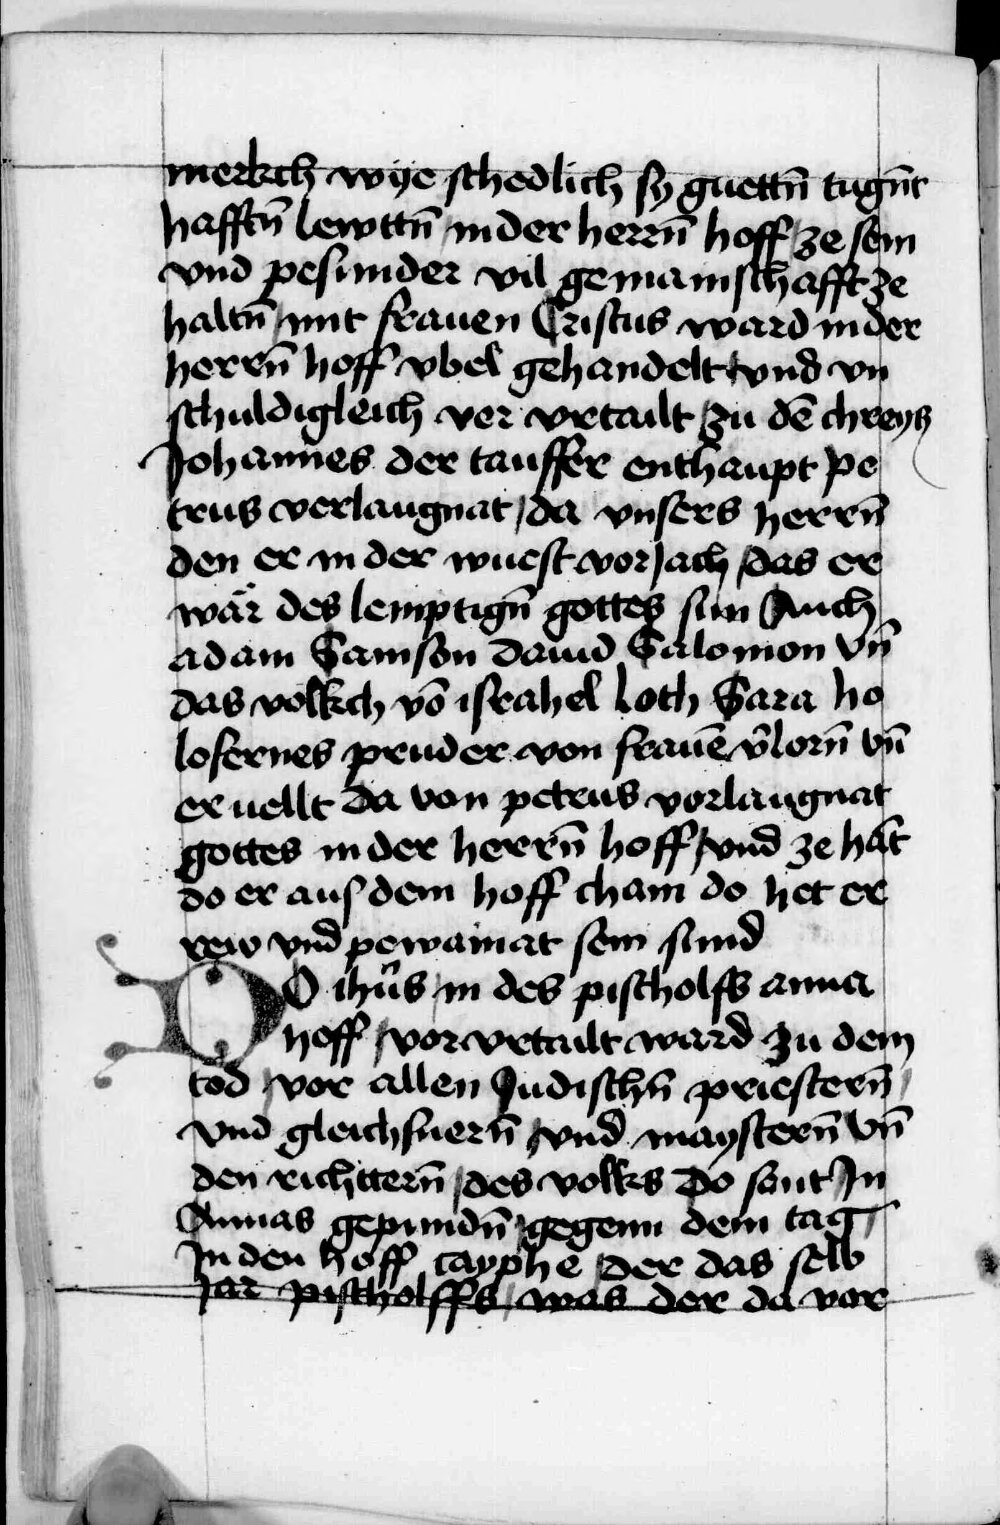 merkch wye schedlich sy guettn̄ tugn̄t
hafftn̄ lewttn̄ / in der herrn̄ hoff / ze sein
vnd pesunder vil gemainschafft ze
haltn̄ / mit frauen Cristus ward in der
herrn̄ hoff vbel gehandelt / vnd vn
schuldigleich ver vrtailt / zu dē chreytz
Johannes der tauffer enthaupt pe
trus verlaugnat / da vnsers herrn̄
den er in der wuest vorjach / das er
wär des lemptign̄ gottes sun Auch
adam Samson dauid Salomon vn̄
das volkch vō israhel loth Sara ho
lofernes pruder von frauē v̄lorn̄ vn̄
er uellt da von petrus vorlaugnat
gottes in der herrn̄ hoff / vnd ze hāt
do er aus dem hoff cham do het er
rew vnd pewainat sein sund
DO ihūs in des pischolfs anna
hoff / vor vrtailt ward zu dem
tod / vor allen Judischn̄ priestern̄ /
vnd gleichsnern̄ / vnd maystern̄ vn̄
den richttern̄ / des volks Do sant In
Annas gepundn̄ / gegenn dem tag
In den hoff cayphe / der das selb
Jar pischolffs / was der da vor